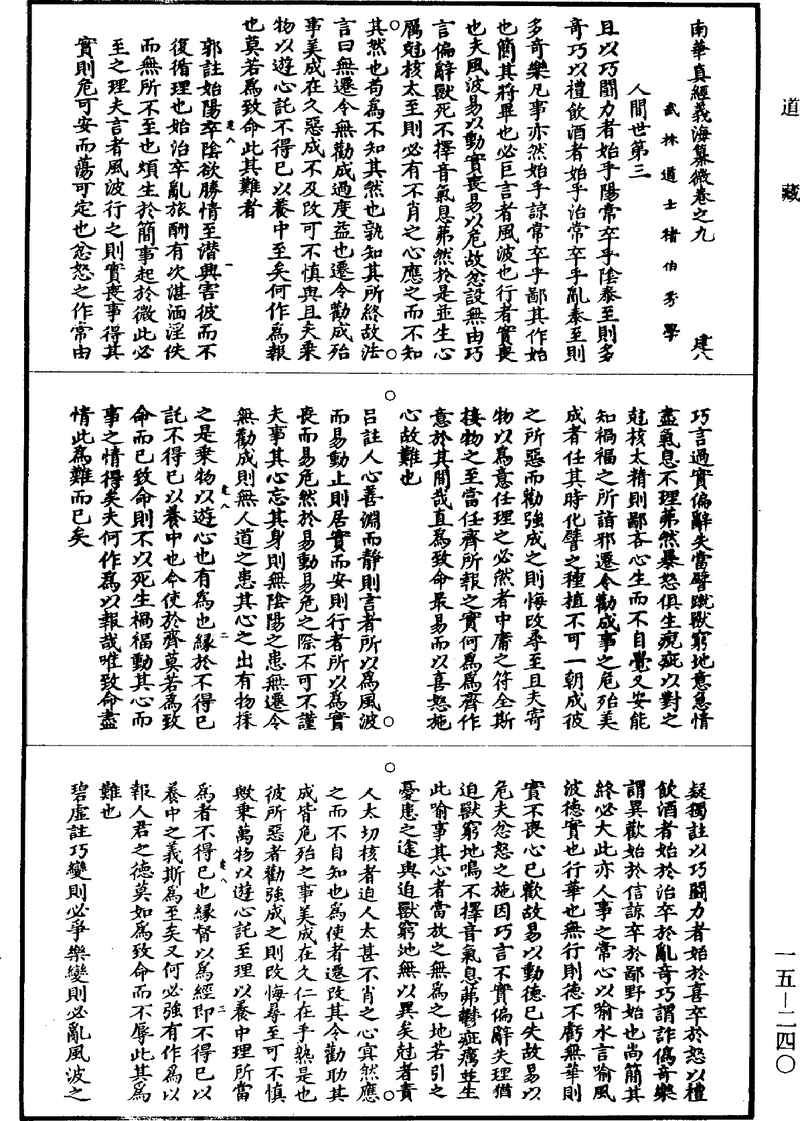 道藏
南華真經義海纂微卷之九 建八
武林道士褚伯秀學
人間世第三
且以巧鬬力者始乎陽常卒乎陰泰至則多
奇巧以禮飲酒者始乎治常卒乎亂泰至則
多奇樂凡事亦然始乎諒常卒乎鄙其作始
也簡其將畢也必巨言者風波也行者實喪
也夫風波易以動實喪易以危故忿設無由巧
言偏辭獸死不擇音氣息茀然於是並生心
厲剋核太至則必有不肖之心應之而不知
其然也苟為不知其然也孰知其所終故法
言曰無遷令無勸成過度益也遷令勸成殆
事美成在久惡成不及改可不慎與且夫乗
物以遊心託不得已以養中至矣何作為報
也莫若為致命此其難者
郭註始陽卒陰欲勝情至潛興害彼而不
復循理也始治卒亂旅酬有次湛湎淫佚
而無所不至也煩生於簡事起於微此必
至之理夫言者風波行之則實喪事得其
實則危可安而蕩可定也忿怒之作常由
巧言過實偏辭失當譬蹴獸窮地意急情
盡氣息不理茀然暴怒俱生疣疵以對之
剋核太精則鄙吝心生而不自覺又安能
知禍福之所詣邪遷令勸成事之危殆美
成者任其時化譬之種植不可一朝成彼
之所惡而勸強成之則悔改尋至且夫寄
物以為意任理之必然者中庸之符全斯
接物之至當任齊所報之實何為為齊作
意於其間哉直為致命最易而以喜怒施
心故難也
呂註人心善淵而靜則言者所以為風波
而易動止則居實而安則行者所以為實
喪而易危然於易動易危之際不可不謹
夫事其心忘其身則無陰陽之患無遷令
無勸成則無人道之患其心之出有物採
之是乗物以遊心也有為也緣於不得已
託不得已以養中也今使於齊莫若為致
命而已致命則不以死生禍福動其心而
事之情得矣夫何作為以報哉唯致命盡
情此為難而已矣
疑獨註以巧鬬力者始於喜卒於怒以禮
飲酒者始於治卒於亂奇巧謂詐僞奇樂
謂異歡始於信諒卒於鄙野始也尚簡其
終必大此亦人事之常心以喻水言喻風
波德實也行華也無行則德不虧無華則
實不喪心已歡故易以動德已失故易以
危夫忿怒之施因巧言不實偏辭失理猶
迫獸窮地鳴不擇音氣息茀鬱疵癘並生
此喻事其心者當放之無為之地若引之
憂患之途與迫獸窮地無以異矣剋者責
人太切核者迫人太甚不肖之心宜然應
之而不自知也為使者遷改其令勸助其
成皆危殆之事美成在久仁在乎熟是也
彼所惡者勸強成之則改悔尋至可不慎
歟乗萬物以遊心託至理以養中理所當
為者不得已也緣督以為經即不得已以
養中之義斯為至矣又何必強有作為以
報人君之德莫如為致命而不辱此其為
難也
碧虛註巧變則必爭樂變則必亂風波之
一五－二四〇